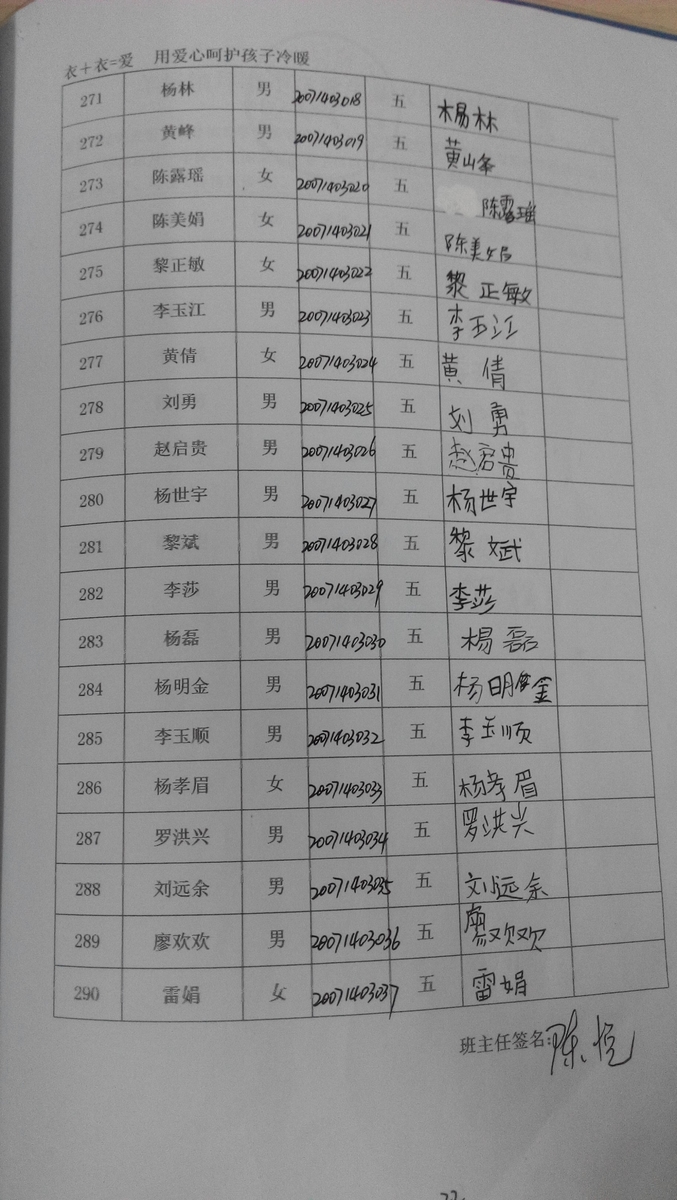 衣+衣=爱 用爱心呵护孩子冷暖
271 杨林 男 20071403018 五 杨林
272 黄峰 男 20071403019 五 黄峰
273 陈露瑶 女 20071403020 五 陈露瑶
274 陈美娟 女 20071403021 五 陈美娟
275 黎正敏 女 20071403022 五 黎正敏
276 李玉江 男 20071403023 五 李玉江
277 黄倩 女 20071403024 五 黄倩
278 刘勇 男 20071403025 五 刘勇
279 赵启贵 男 20071403026 五 赵启贵
280 杨世宇 男 20071403027 五 杨世宇
281 黎斌 男 20071403028 五 黎斌
282 李莎 男 20071403029 五 李莎
283 杨磊 男 20071403030 五 杨磊
284 杨明金 男 20071403031 五 杨明金
285 李玉顺 男 20071403032 五 李玉顺
286 杨孝眉 女 20071403033 五 杨孝眉
287 罗洪兴 男 20071403034 五 罗洪兴
288 刘远余 男 20071403035 五 刘远余
289 廖欢欢 男 20071403036 五 廖欢欢
290 雷娟 女 20071403037 五 雷娟
班主任签名:陈